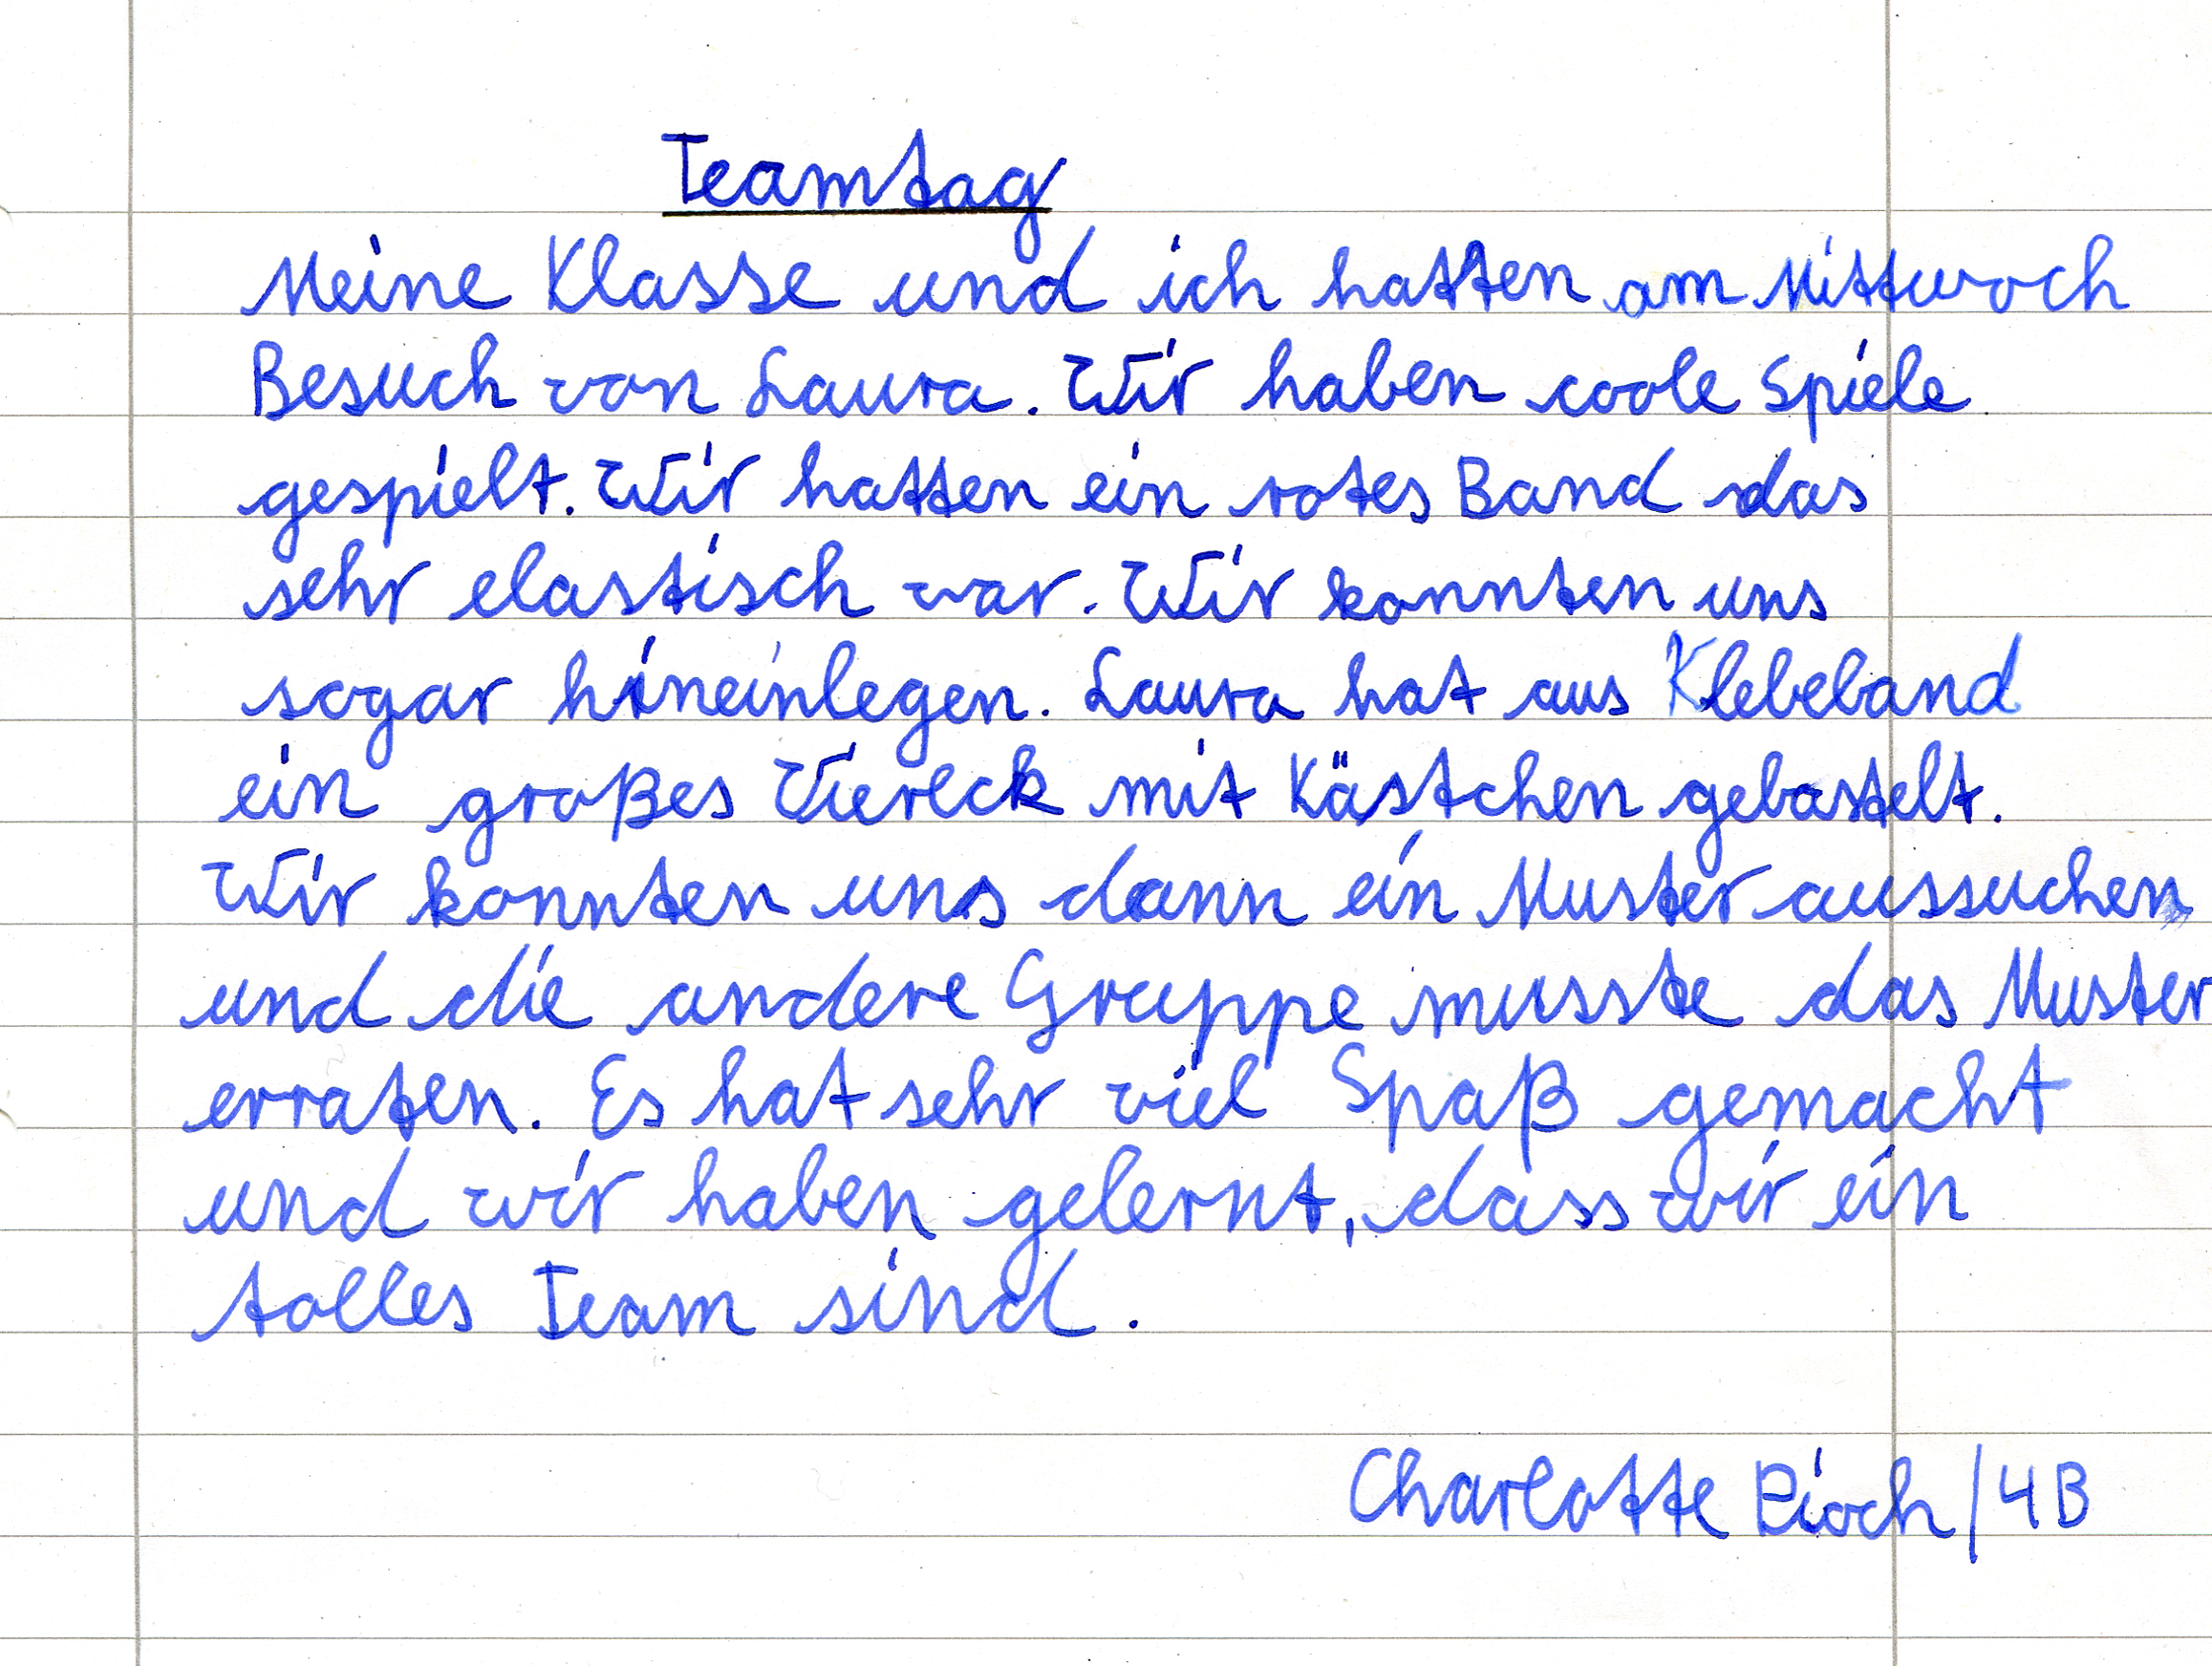 Teamtag
Meine Klasse und ich hatten am Mittwoch
Besuch von Laura. Wir haben coole Spiele
gespielt. Wir hatten ein rotes Band das
sehr elastisch war. Wir konnten uns
sogar hineinlegen. Laura hat aus Klebeband
ein großes Viereck mit Kästchen gebastelt.
Wir konnten uns dann ein Muster aussuchen
und die andere Gruppe musste das Muster
erraten. Es hat sehr viel Spaß gemacht
und wir haben gelernt, dass wir ein
tolles Team sind.
Charlotte Pioch / 4B